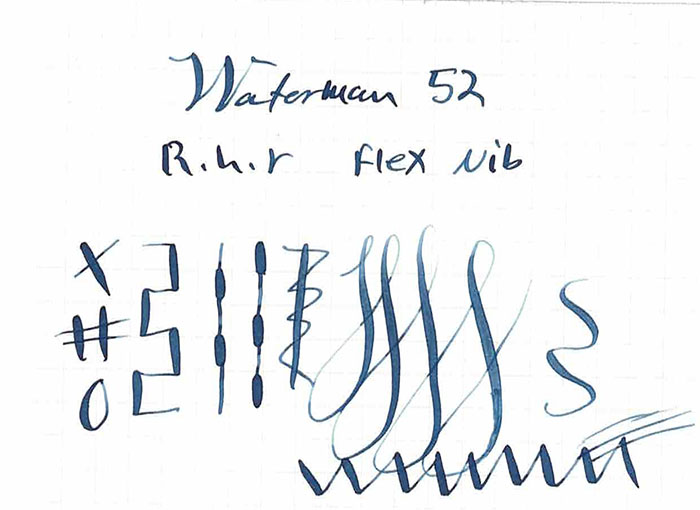 Waterman 52
R.h.r flex Nib
X
#
O